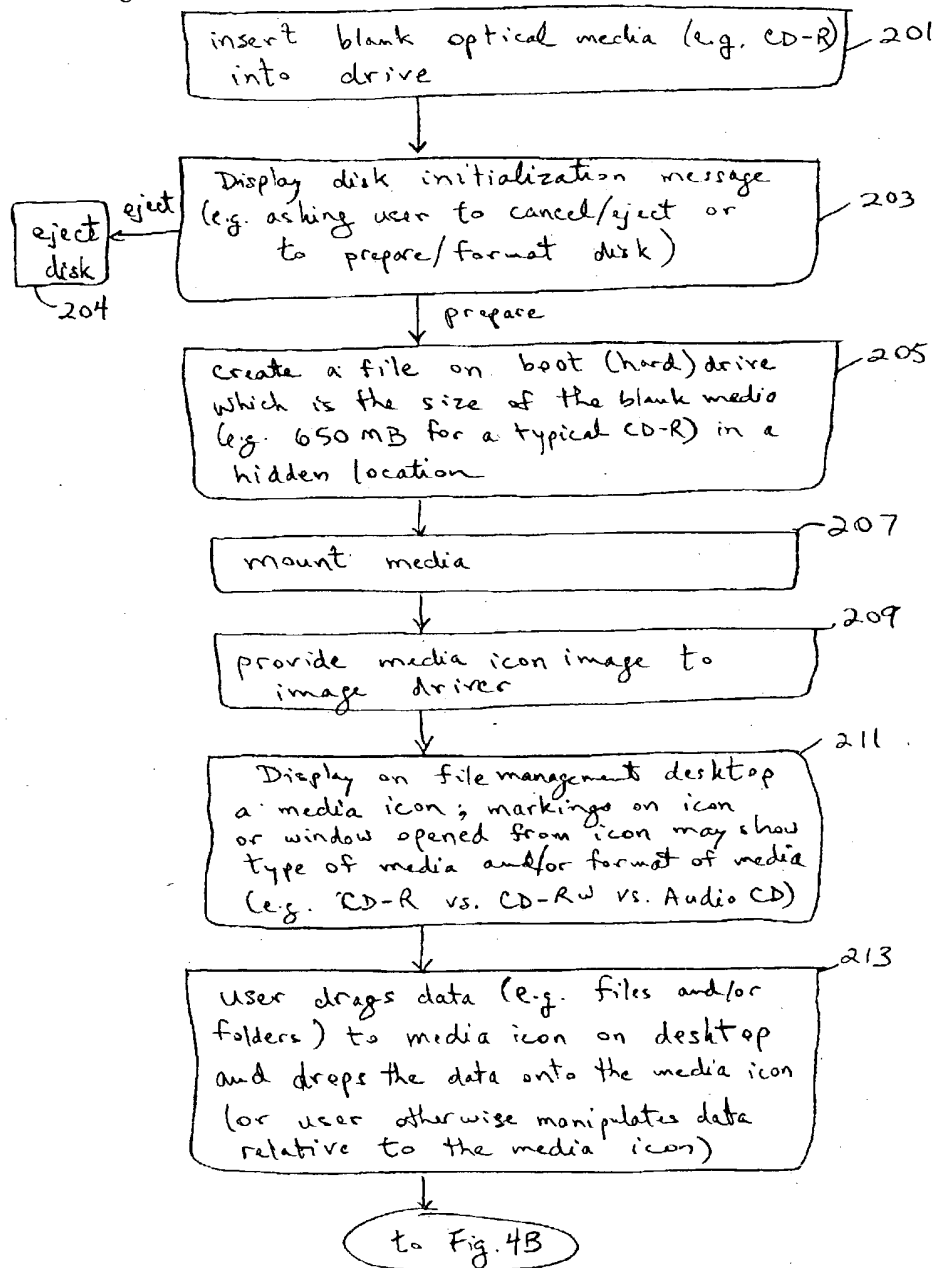 insert blank optical media (e.g. CD-R)
into drive
201
Display disk initialization message
(e.g. asking user to cancel/eject or
to prepare/format disk)
203
eject
eject
disk
204
prepare
create a file on boot (hard) drive
which is the size of the blank media
(e.g. 650 MB for a typical CD-R) in a
hidden location
205
mount media
207
provide media icon image to
image driver
209
Display on file management desktop
a media icon; markings on icon
or window opened from icon may show
type of media and/or format of media
(e.g. CD-R vs. CD-RW vs. Audio CD)
211
user drags data (e.g. files and/or
folders) to media icon on desktop
and drops the data onto the media icon
(or user otherwise manipulates data
relative to the media icon)
213
to Fig. 4B